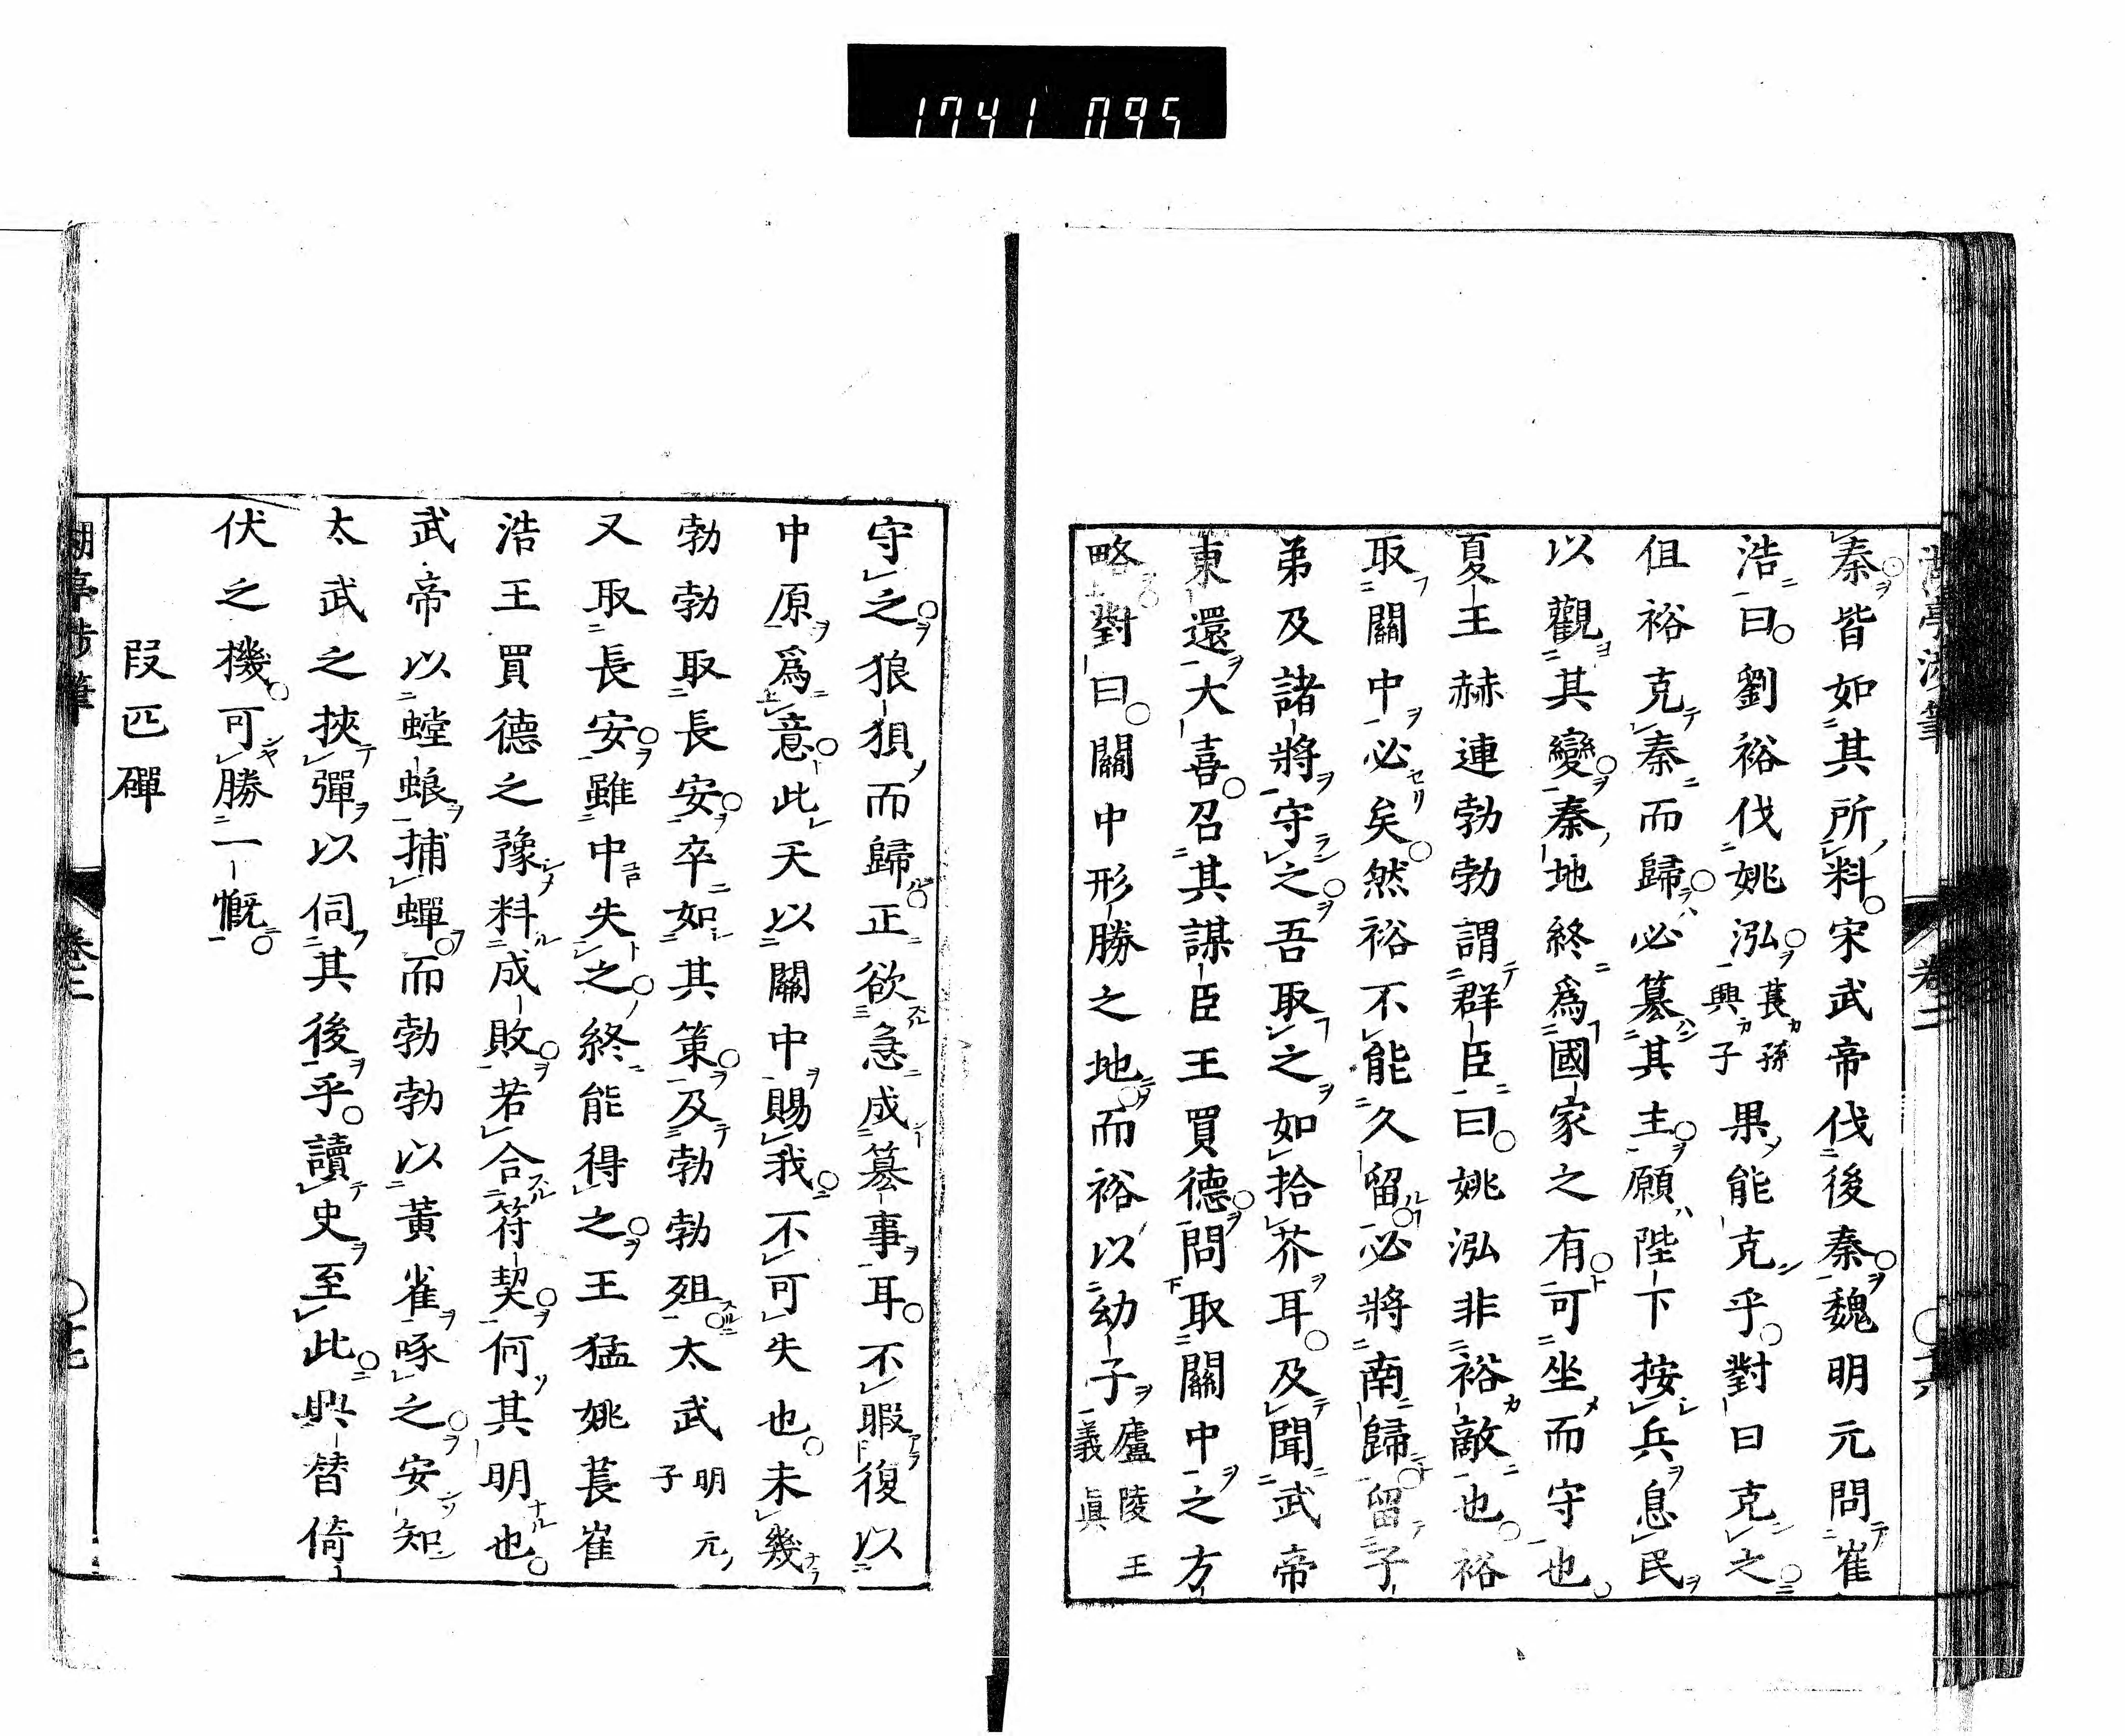 1741 095
秦皆如其所料宋武帝伐後秦魏明元問崔
浩曰劉裕伐姚泓萇孫興子果能克乎對曰克之
但裕克秦而歸必簒其主願陛下按兵息民
以觀其變秦地終爲國家之有可坐而守也
夏王赫連勃勃謂群臣曰姚泓非裕敵也裕
取關中必矣然裕不能久留必將南歸留子
弟及諸將守之吾取之如拾芥耳及聞武帝
東還大喜召其謀臣王買德問取關中之方
略對曰關中形勝之地而裕以幼子廬陵王義眞
守之狼狽而歸正欲急成簒事耳不暇復以
中原爲意此天以關中賜我不可失也未幾
勃勃取長安卒如其策及勃勃殂太武明元子
又取長安雖中失之終能得之王猛姚萇崔
浩王買德之豫料成敗若合符契何其明也
武帝以螳蜋捕蟬而勃勃以黃雀啄之安知
太武之挾彈以伺其後乎讀史至此興替倚
伏之機可勝一慨
段匹磾
卷三